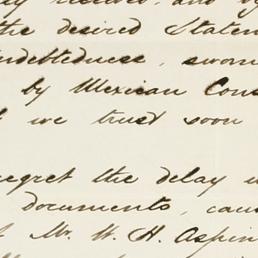 received, and
the desired Statem
ndebtedness, swor
by Mexican Cons
we trust soon
egret the delay
documents, cau
f Mr. W. H. Aspin